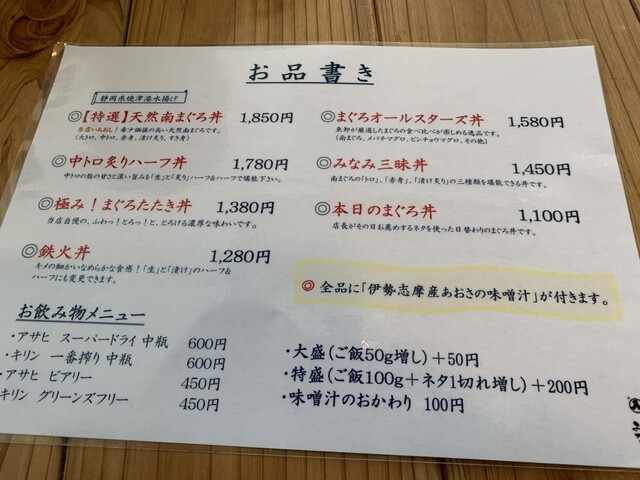 お品書き
静岡県焼津港水揚げ
◎【特選】天然南まぐろ丼 1,850円
当店いちおし!希少価値の高い天然南まぐろです。
(大トロ、中トロ、赤身、漬け炙り、すき身)
◎中トロ炙りハーフ丼 1,780円
中トロの脂の甘さと深い旨みを「生」と「炙り」ハーフ&ハーフで堪能下さい。
◎極み!まぐろたたき丼 1,380円
当店自慢の、ふわっ!とろっ!と、とろける濃厚な味わいです。
◎鉄火丼 1,280円
キメの細かいなめらかな食感!「生」と「漬け」のハーフ&
ハーフにも変更できます。
◎まぐろオールスターズ丼 1,580円
魚卸が厳選したまぐろの食べ比べが楽しめる逸品です。
(南まぐろ、メバチマグロ、ビンチョウマグロ、その他)
◎みなみ三昧丼 1,450円
南まぐろの「トロ」、「赤身」、「漬け炙り」の三種類を堪能できる丼です。
◎本日のまぐろ丼 1,100円
店長がその日お薦めするネタを使った日替わりのまぐろ丼です。
◎ 全品に「伊勢志摩産あおさの味噌汁」が付きます。
お飲み物メニュー
・アサヒ スーパードライ 中瓶 600円
・キリン 一番搾り 中瓶 600円
・アサヒ ビアリー 450円
キリン グリーンズフリー 450円
・大盛(ご飯50g増し)+50円
・特盛(ご飯100g+ネタ1切れ増し)+200円
・味噌汁のおかわり 100円